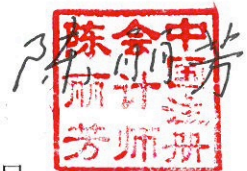 陈丽芳
中国注册
会计师
陈丽芳